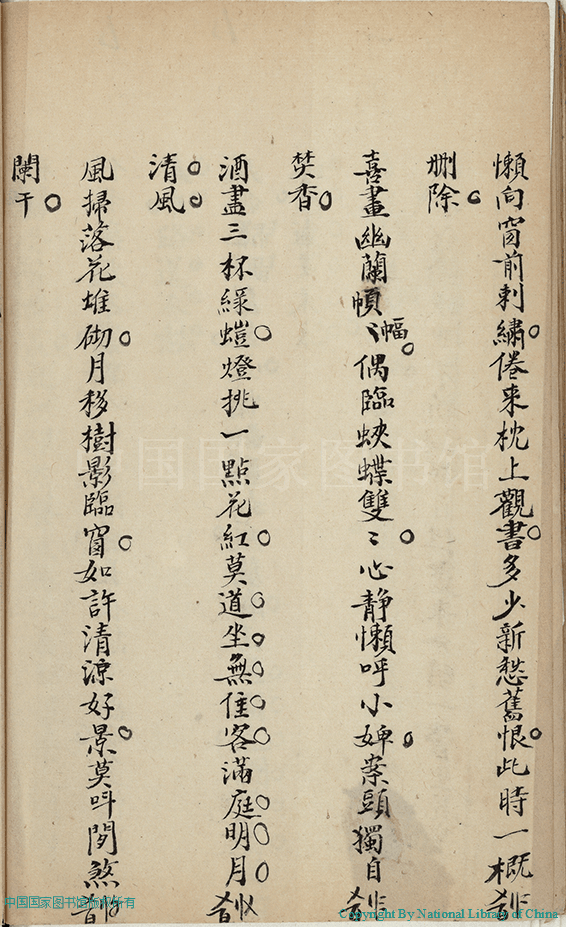 懶向窗前刺繡倦来枕上觀書多少新愁舊恨此時一概
刪除
喜畫幽蘭幀幅〻偶臨蛺蝶雙〻心静懶呼小婢案頭獨自
焚香
酒盡三杯綠螘燈挑一點花紅莫道坐無佳客滿庭明月
清風
風掃落花堆砌月移樹影臨窗如許清涼好景莫叫閒煞
闌干
中国国家图书馆
中国国家图书馆版权所有
Copyright By National Library of China